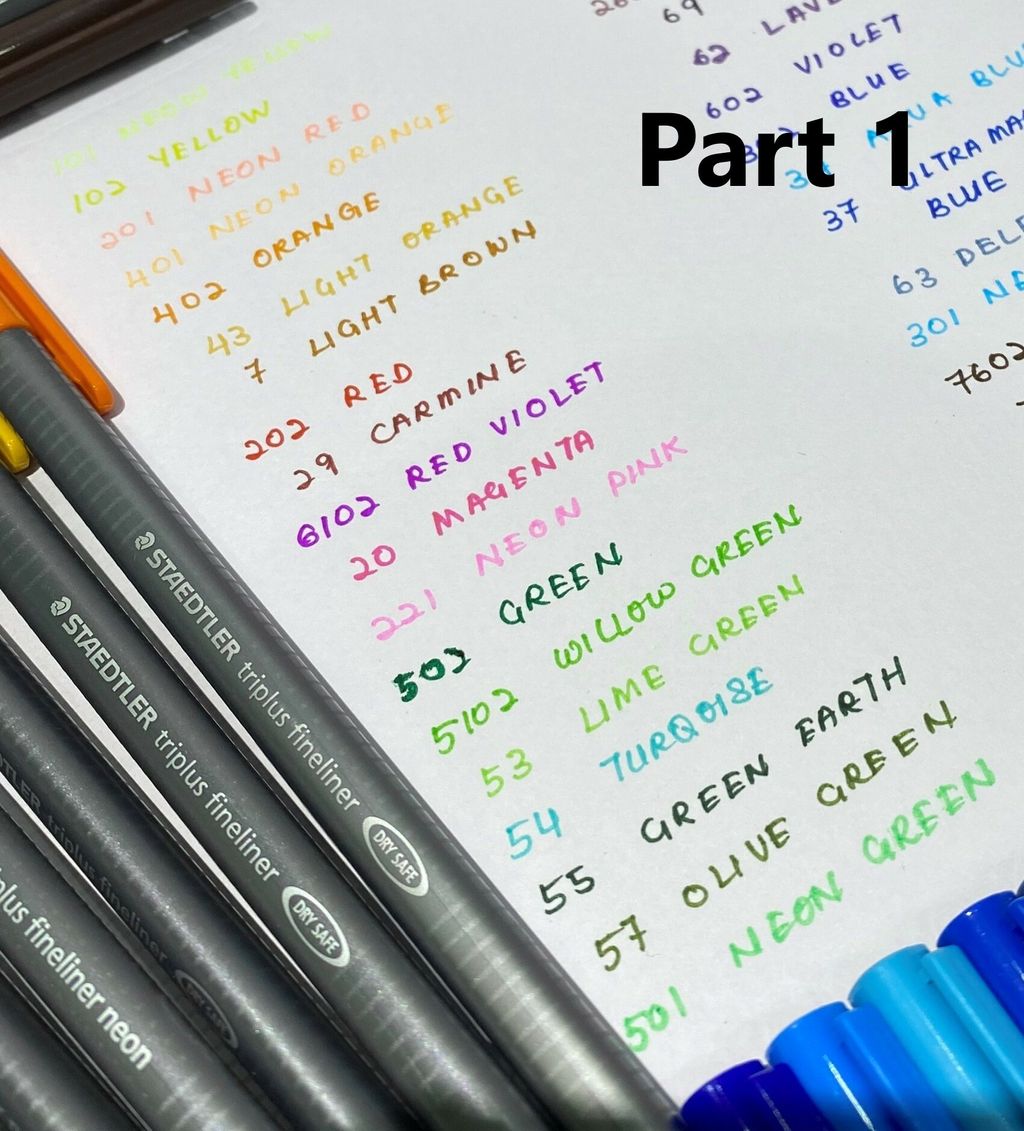 101 NEON YELLOW
102 YELLOW
201 NEON RED
401 NEON ORANGE
402 ORANGE
43 LIGHT ORANGE
7 LIGHT BROWN
202 RED
29 CARMINE
6102 RED VIOLET
20 MAGENTA
221 NEON PINK
502 GREEN
5102 WILLOW GREEN
53 LIME GREEN
54 TURQOISE
55 GREEN EARTH
57 OLIVE GREEN
501 NEON GREEN
69
62
602 VIOLET
BLUE
Part 1
37 ULTRA
BLUE
63
301
7602
STAEDTLER triplus fineliner DRY SAFE
STAEDTLER triplus fineliner DRY SAFE
triplus fineliner
fineliner neon